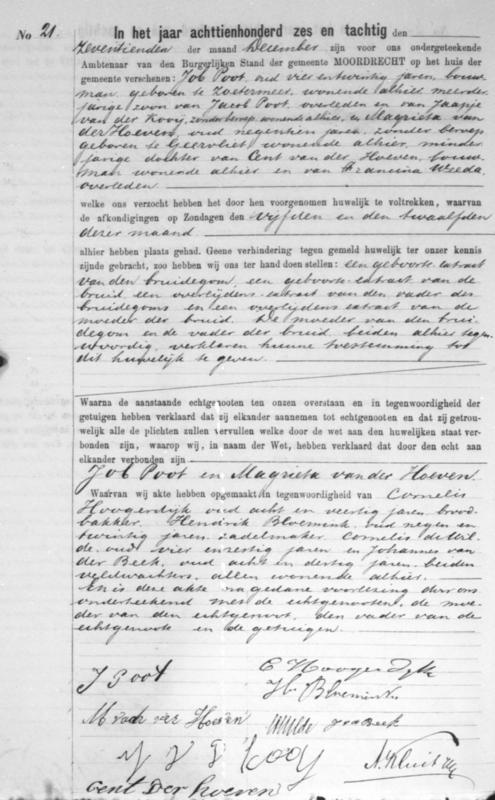 No 21.
In het jaar achttienhonderd zes en tachtig den
zeventienden der maand December zijn voor ons ondergeteekende
Ambtenaar van den Burgerlijken Stand der gemeente MOORDRECHT op het huis der
gemeente verschenen: Job Poot, oud vier en twintig jaren, bouw-
man, geboren te Zoetermeer, wonende alhier, meerder-
jarige zoon van Jacob Poot, overleden en van Jaapje
van der Kooij, zonder beroep, wonende alhier, en Magrieta van
der Hoeven, oud negentien jaren, zonder beroep
geboren te Geervliet wonende alhier, minder
jarige dochter van Cent van der Hoeven, bouw-
man wonende alhier en van Francina Weeda,
overleden
welke ons verzocht hebben het door hen voorgenomen huwelijk te voltrekken, waarvan
de afkondigingen op Zondagen den vijfden en den twaalfden
dezer maand
alhier hebben plaats gehad. Geene verhindering tegen gemeld huwelijk ter onzer kennis
zijnde gebracht, zoo hebben wij ons ter hand doen stellen: een geboorte-extract
van den bruidegom, een geboorte-extract van de
bruid, een overlijdens-extract van den vader des
bruidegoms en een overlijdens extract van de
moeder der bruid. De moeder van den brui-
degom en de vader der bruid, beiden alhier tegen-
woordig, verklaren hunne toestemming tot
dit huwelijk te geven.
Waarna de aanstaande echtgenooten ten onzen overstaan en in tegenwoordigheid der
getuigen hebben verklaard dat zij elkander aannemen tot echtgenooten en dat zij getrou-
welijk alle de plichten zullen vervullen welke door de wet aan den huwelijken staat ver-
bonden zijn, waarop wij, in naam der Wet, hebben verklaard dat door den echt aan
elkander verbonden zijn
Job Poot en Magrieta van der Hoeven.
Waarvan wij akte hebben opgemaakt in tegenwoordigheid van Cornelis
Hoogendijk oud acht en veertig jaren, brood-
bakker, Hendrik Bloemink, oud negen en
twintig jaren, zadelmaker, Cornelis de Wil-
de, oud vier en zestig jaren en Johannes van
der Beek, oud acht en dertig jaren, beiden
veldwachters, allen wonende alhier.
En is deze akte na gedane voorlezing door ons
onderteekend met de echtgenooten, de moe-
der van den echtgenoot, den vader van de
echtgenoote en de getuigen.
J Poot
C Hoogendijk
H. Bloemink
M van der Hoeven
CdWilde
JvandBeek
J V D Kooy
Cent Der hoeven